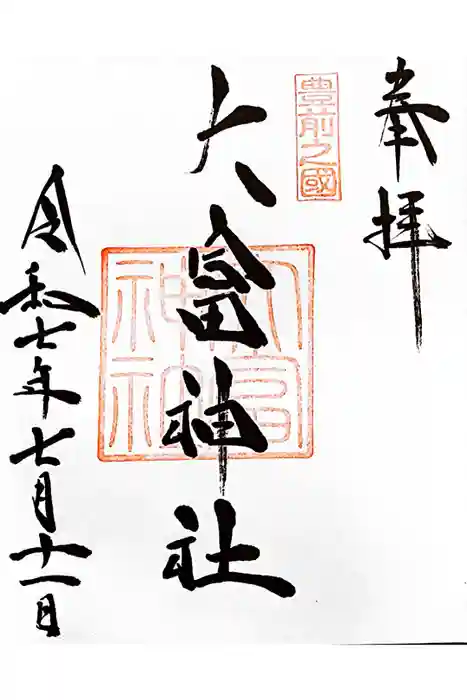 奉拝
豊前之國
大富神社
大富神社
令和七年七月十一日